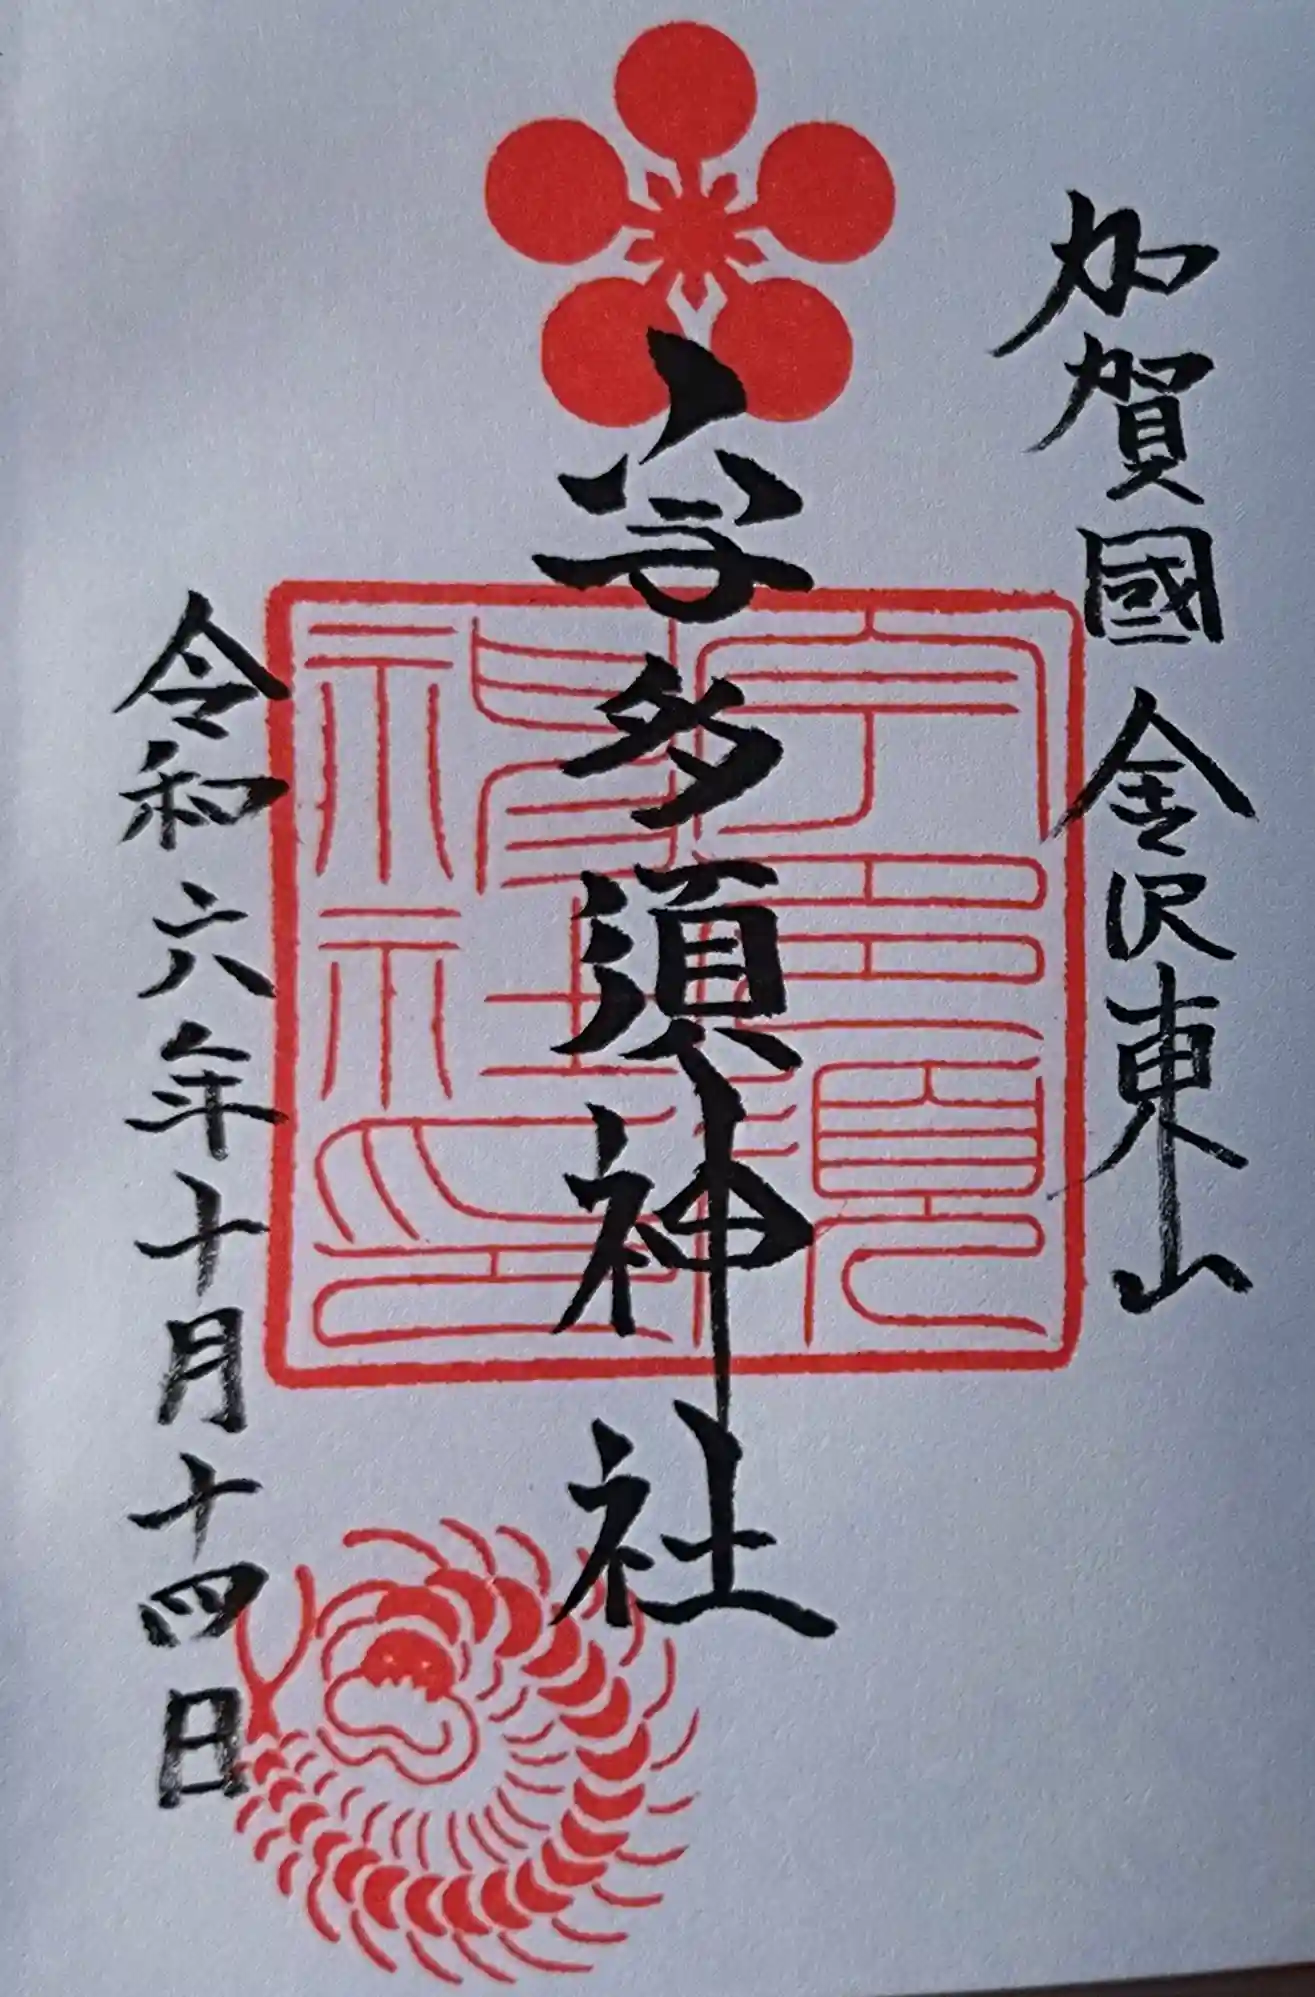 加賀國金沢東山
宇多須神社
宇多須神社社印
令和六年十月十四日